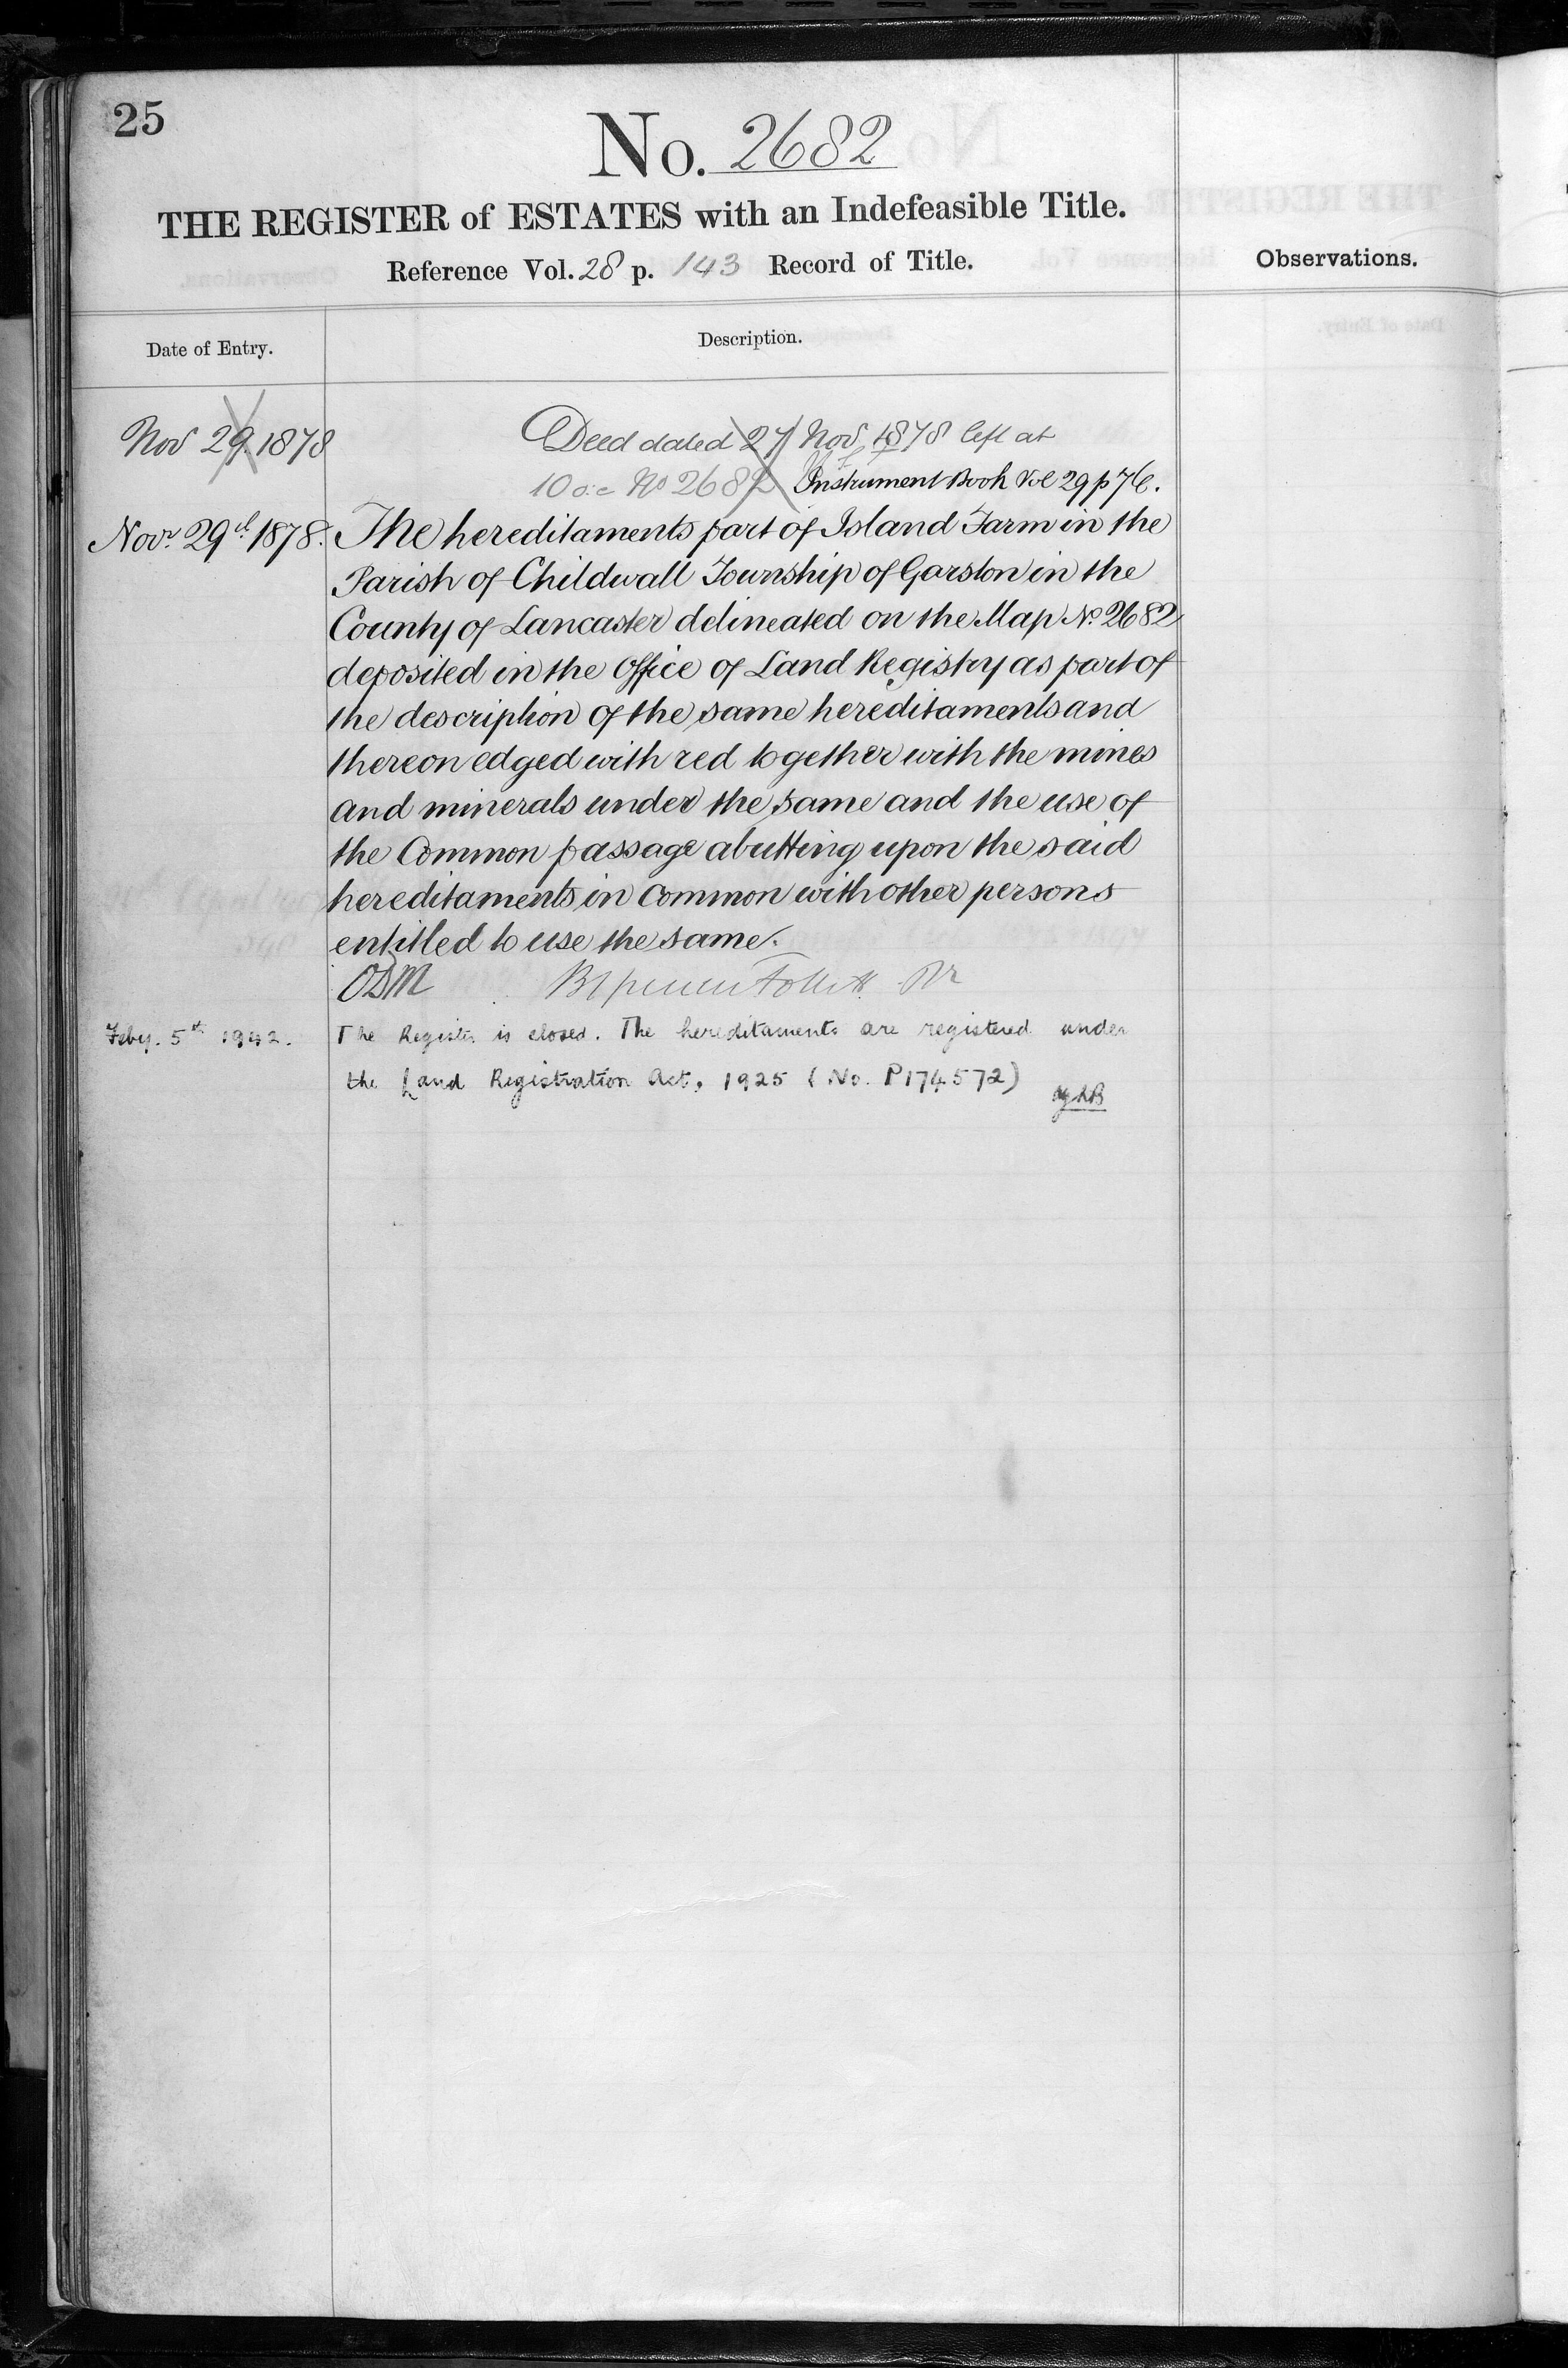 25
No. 2682
THE REGISTER of ESTATES with an Indefeasible Title.
Reference Vol. 28 p. 143 Record of Title.
Observations.
Date of Entry.
Description.
Nov 29. 1878
Deed dated 27 Nov, 1878 left at
10 o.c No 2682 Instrument Book Vol 29 p 76.
Novr. 29th 1878.
The hereditaments part of Island Farm in the
Parish of Childwall Township of Garston in the
County of Lancaster delineated on the Map No. 2682
deposited in the Office of Land Registry as part of
the description of the same hereditaments and
thereon edged with red together with the mines
and minerals under the same and the use of
the Common passage abutting upon the said
hereditaments in Common with other persons
entitled to use the same.
Follett
Feby. 5th 1942.
The Register is closed. The hereditaments are registered under
the Land Registration Act, 1925 (No. P174572)